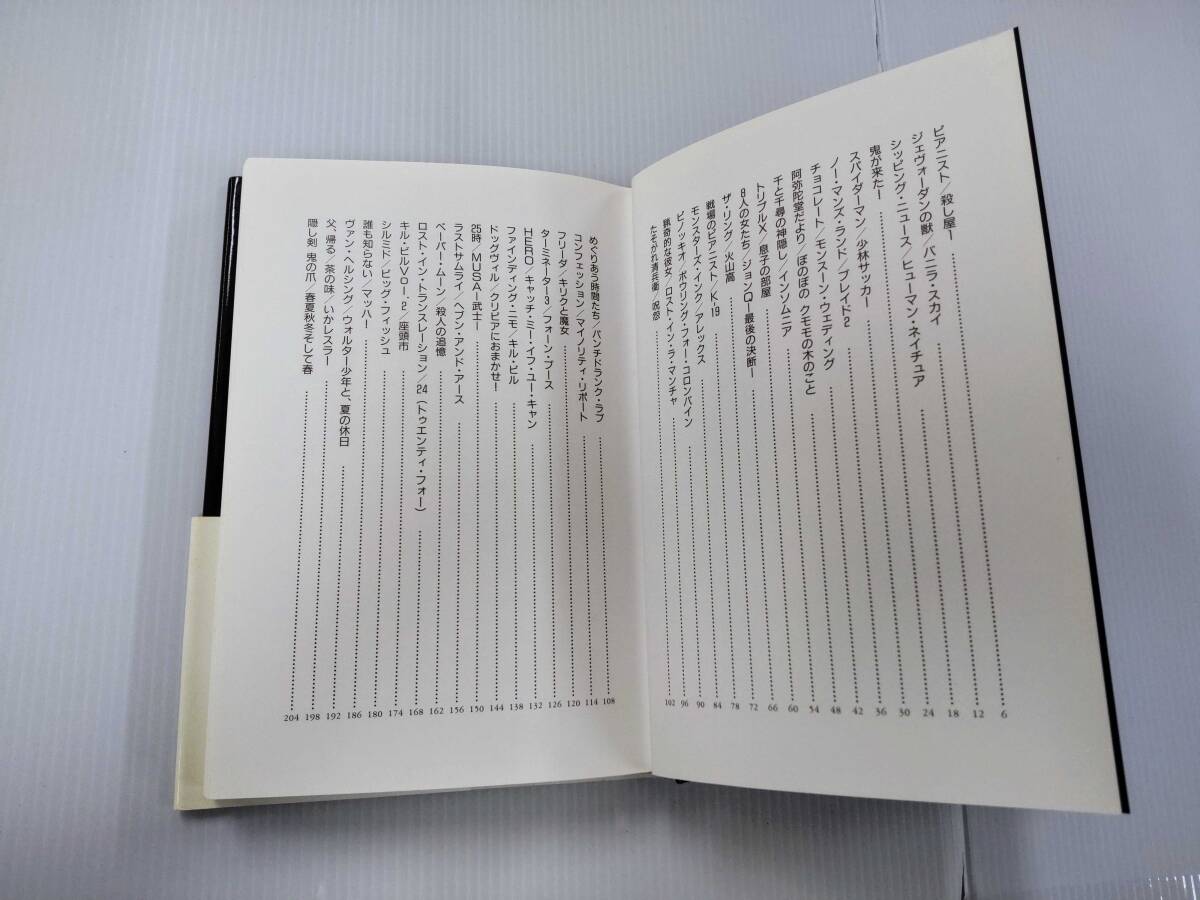 ピアニスト／殺し屋１ 6
ジェヴォーダンの獣／バニラ・スカイ 12
シッピング・ニュース／ヒューマン・ネイチュア 18
鬼が来た！ 24
スパイダーマン／少林サッカー 30
ノー・マンズ・ランド／ブレイド2 36
チョコレート／モンスーン・ウェディング 42
阿弥陀堂だより／ぼのぼの クモモの木のこと 48
千と千尋の神隠し／インソムニア 54
トリプルX／息子の部屋 60
8人の女たち／ジョンQ―最後の決断― 66
ザ・リング／火山高 72
戦場のピアニスト／K-19 78
モンスターズ・インク／アレックス 84
ピノッキオ／ボウリング・フォー・コロンバイン 90
猟奇的な彼女／ロスト・イン・ラ・マンチャ 96
たそがれ清兵衛／呪怨 102
めぐりあう時間たち／パンチドランク・ラブ 108
コンフェッション／マイノリティ・リポート 114
フリーダ／キリクと魔女 120
ターミネーター3／フォーン・ブース 126
HERO／キャッチ・ミー・イフ・ユー・キャン 132
ファインディング・ニモ／キル・ビル 138
ドッグヴィル／クリビアにおまかせ！ 144
25時／MUSA―武士― 150
ラストサムライ／ヘブン・アンド・アース 156
ペーパー・ムーン／殺人の追憶 162
ロスト・イン・トランスレーション／24（トゥエンティ・フォー） 168
キル・ビルVol.2／座頭市 174
シルミド／ビッグ・フィッシュ 180
誰も知らない／マッハ！ 186
ヴァン・ヘルシング／ウォルター少年と、夏の休日 192
父、帰る／茶の味／いかレスラー 198
隠し剣 鬼の爪／春夏秋冬そして春 204